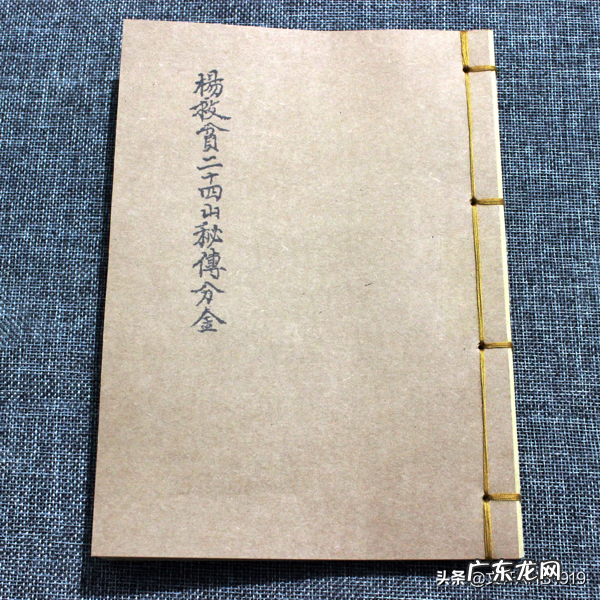 楊救貧二十四山秘傳分金
头条
广东龙网
919